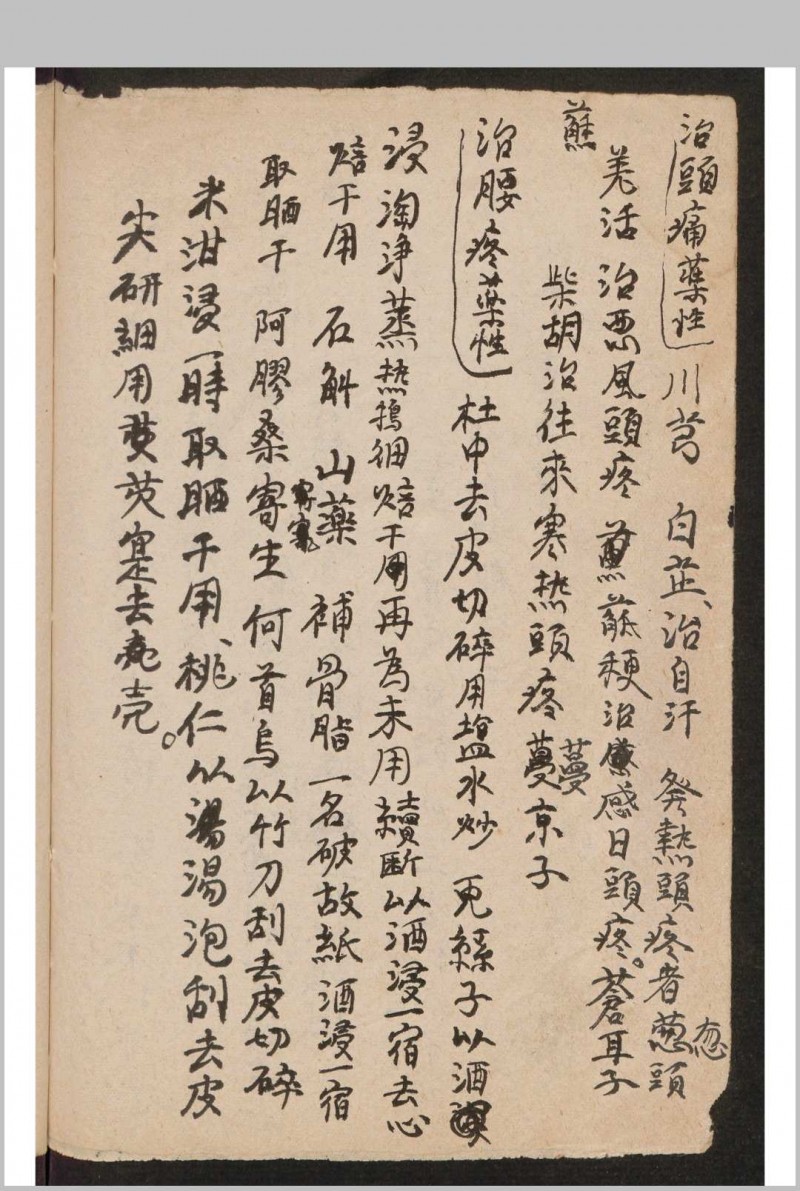 治頭痛藥性 川芎 白芷、治自汗 發熱頭疼者葱頭
葱
羌活 治惡風頭疼 藁 蘇梗治感日頭疼。蒼耳子
蘇
柴胡治往來寒热頭疼蔓京子
蔓
治腰疼藥性 杜中去皮切碎用塩水炒 兎絲子以酒
浸淘净蒸热搗細焙干用再為末用續断以酒浸一宿去心
焙干用 石斛 山藥 補骨脂一名破故紙酒浸一宿
取晒干 阿膠桑寄生何首烏以竹刀刮去皮切碎
寄
米泔浸一時取晒干用、桃仁以湯湯泡刮去皮
尖研細用 去壳。